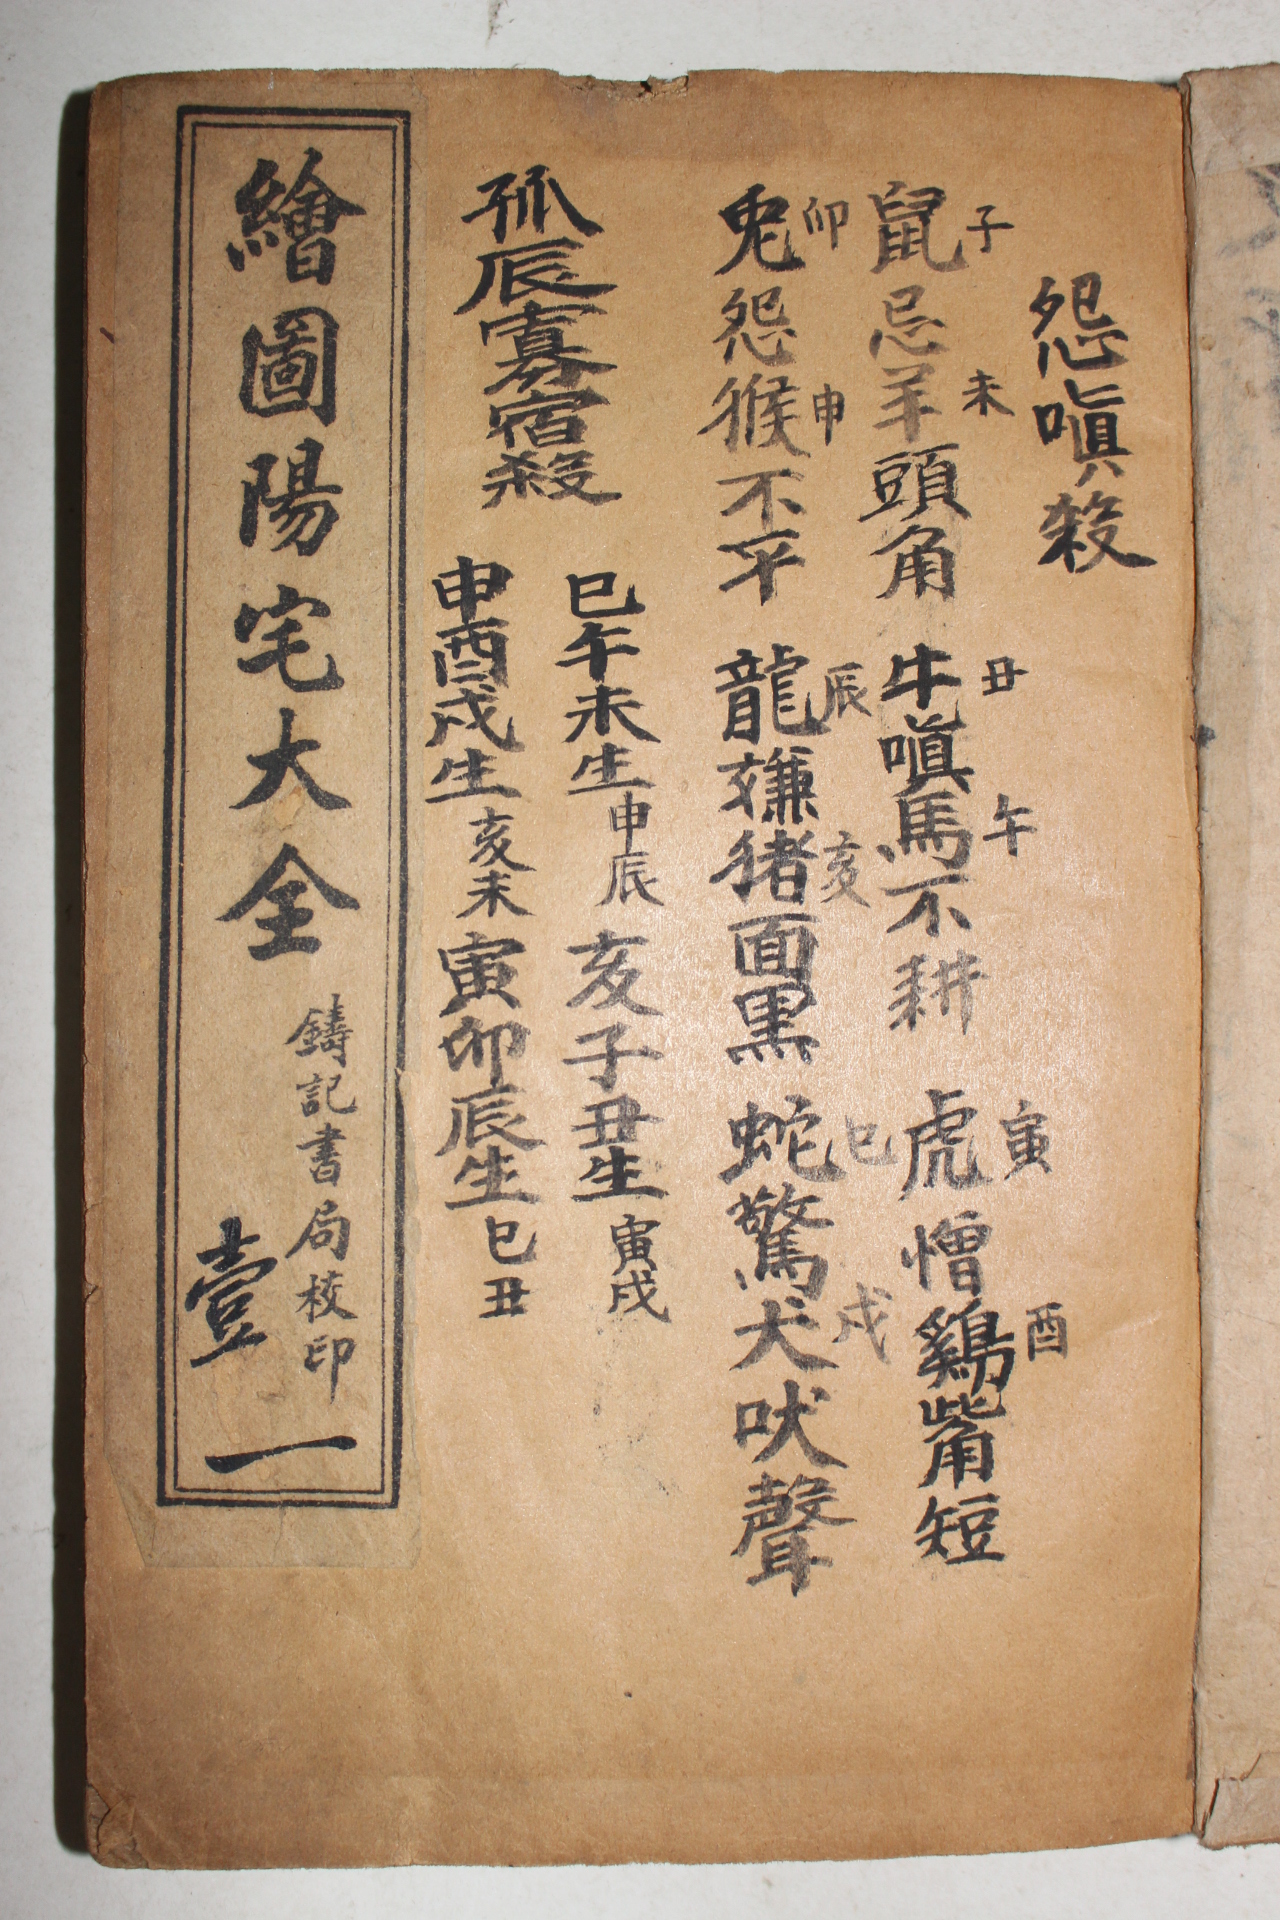 怨嗔殺
鼠子忌羊未頭角 牛丑嗔馬午不耕 虎寅憎鷄酉觜短
兎卯怨猴申不平 龍辰嫌猪亥面黒 蛇巳驚犬戌吠聲
孤辰寡宿殺
巳午未生申辰 亥子丑生寅戌
申酉戌生亥未 寅卯辰生巳丑
繪圖陽宅大全
鑄記書局校印
壹
一